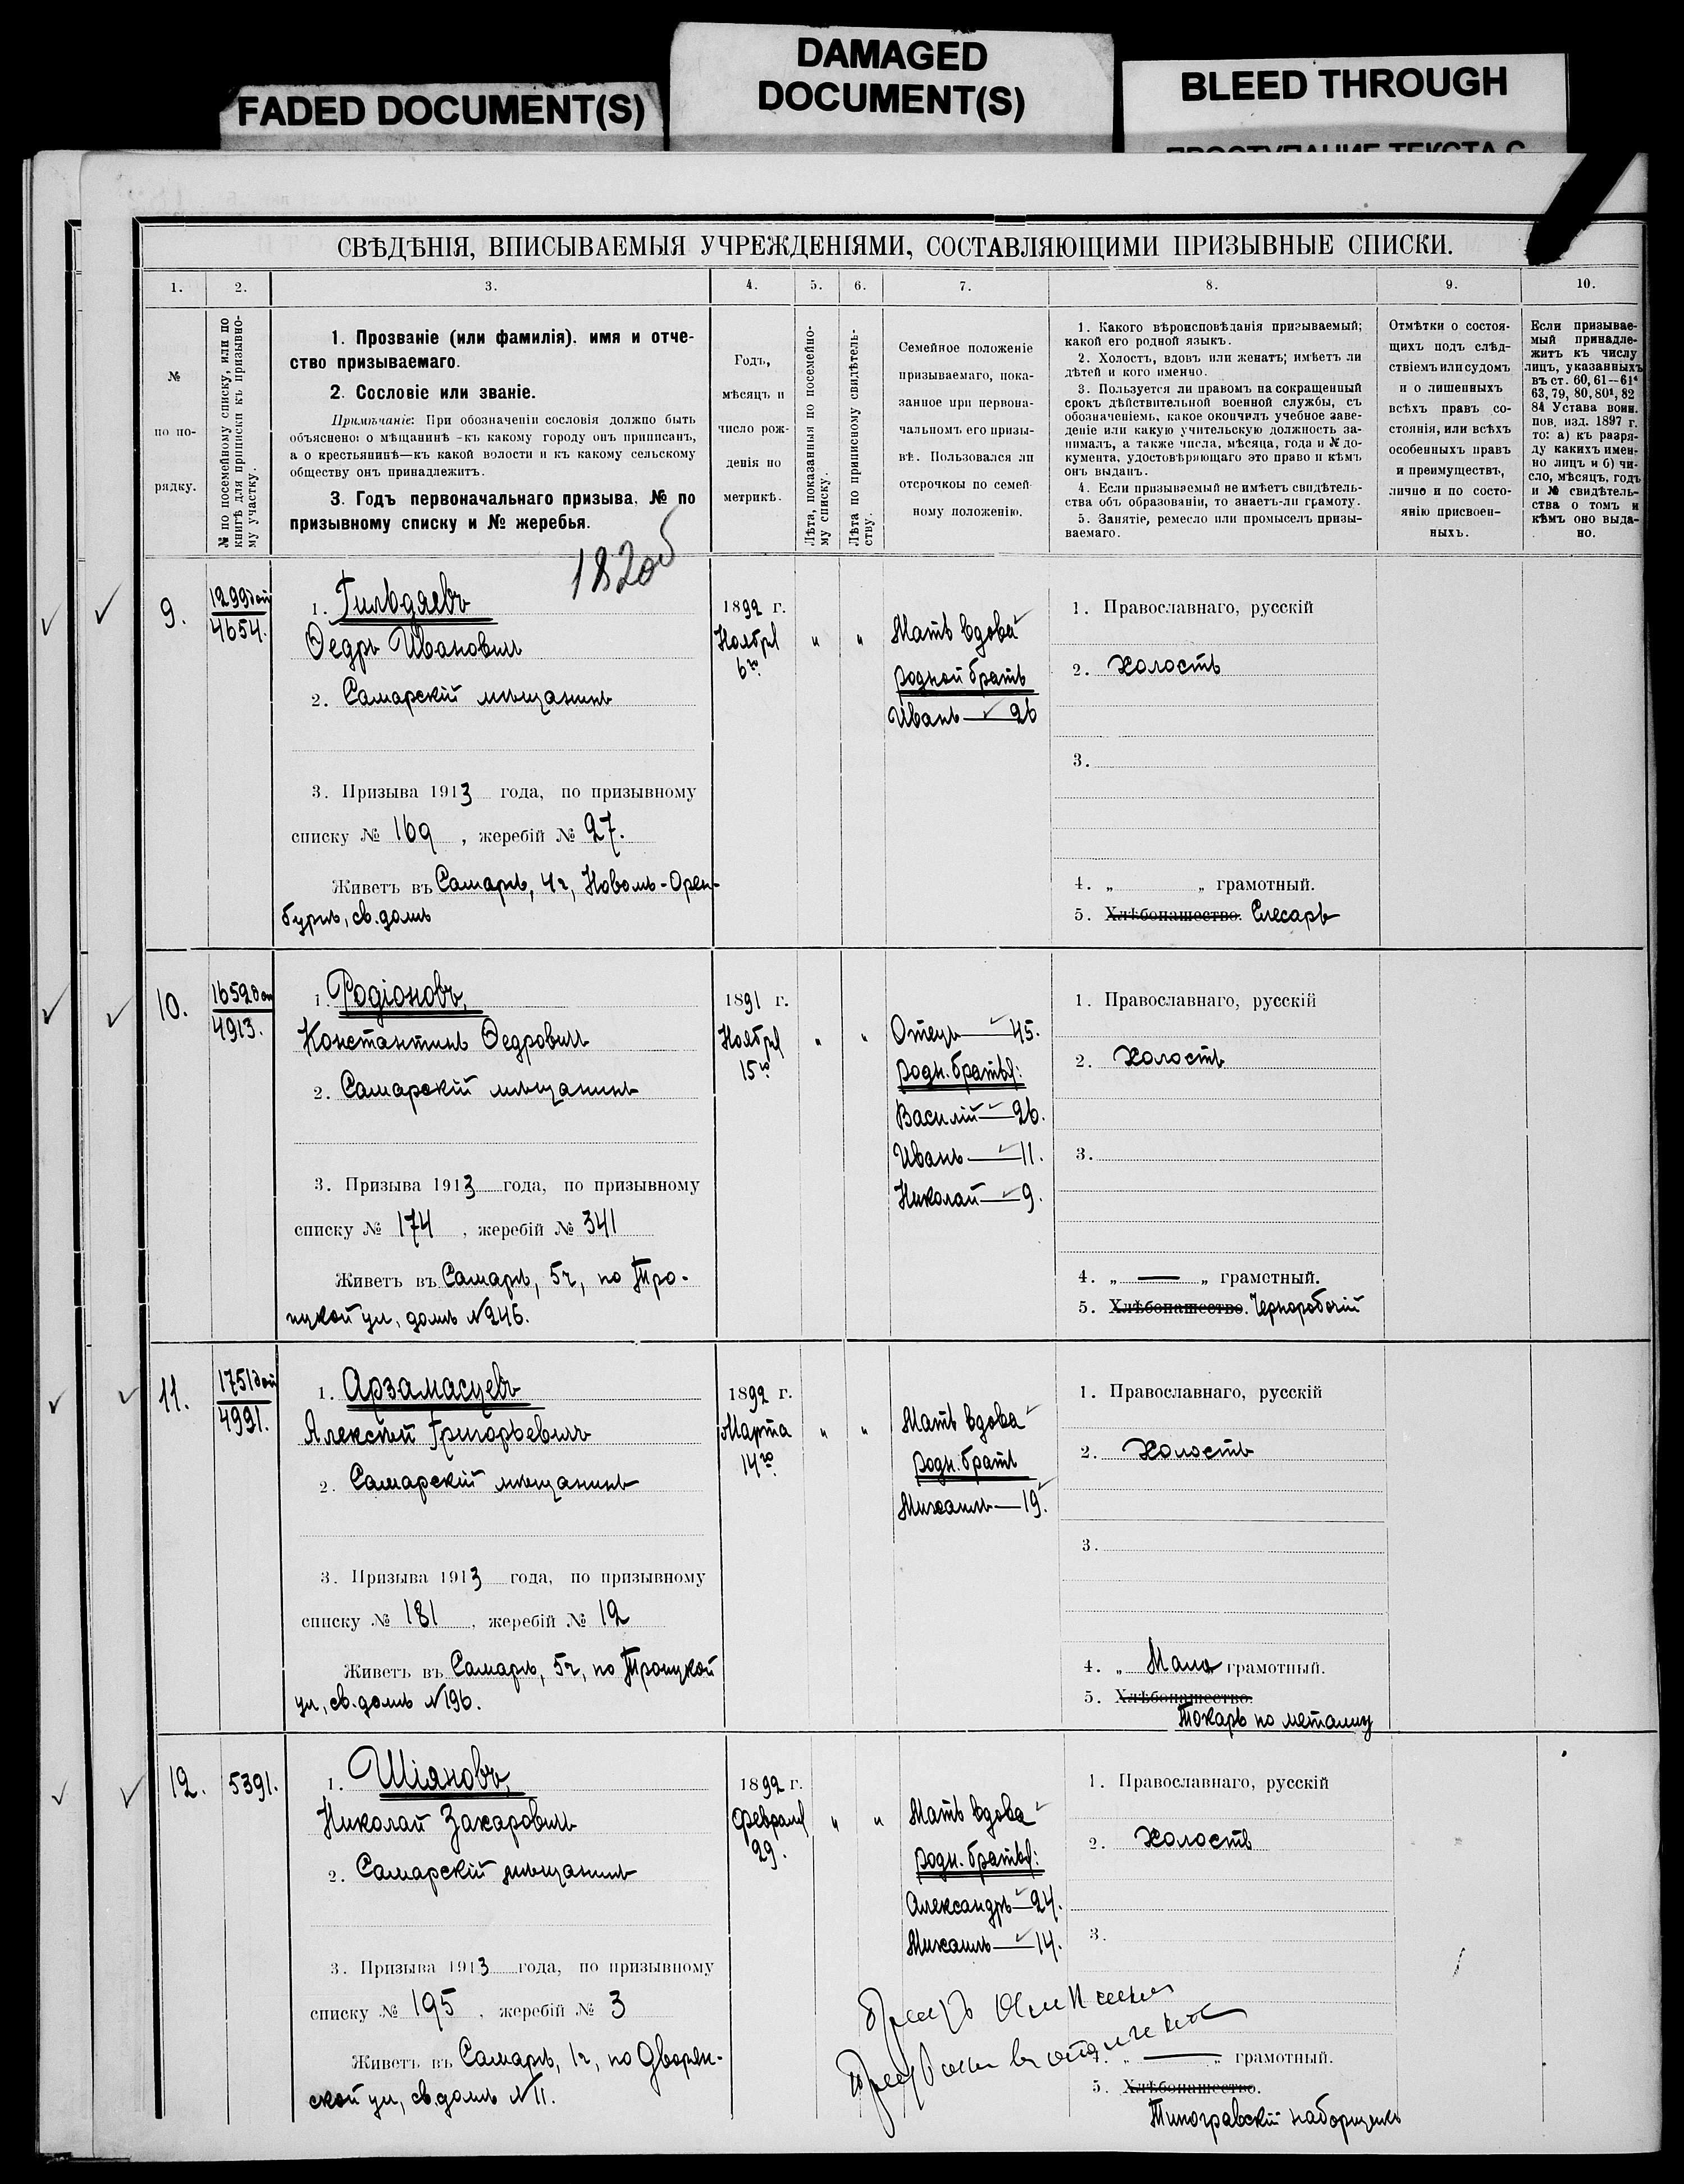 FADED DOCUMENT(S)
DAMAGED
DOCUMENT(S)
BLEED THROUGH
СВѢДѢНІЯ, ВПИСЫВАЕМЫЯ УЧРЕЖДЕНІЯМИ, СОСТАВЛЯЮЩИМИ ПРИЗЫВНЫЕ СПИСКИ.
1. 2. 3. 4. 5. 6. 7. 8. 9. 10.
№
по по-
рядку.
№ по посемейному списку, или по
книгѣ для приписки къ призывно-
му участку.
1. Прозваніе (или фамилія). имя и отче-
ство призываемаго.
2. Сословіе или званіе.
Примѣчаніе: При обозначеніи сословія должно быть
объяснено: о мѣщанинѣ -къ какому городу онъ приписанъ,
а о крестьянинѣ—къ какой волости и къ какому сельскому
обществу онъ принадлежитъ.
3. Годъ первоначальнаго призыва. № по
призывному списку и № жеребья.
Годъ,
мѣсяцъ и
число рож-
денія по
метрикѣ.
Лѣта, показанныя по посемейно-
му списку.
Лѣта по приписному свидѣтель-
ству.
Семейное положеніе
призываемаго, пока-
занное при первона-
чальномъ его призы-
вѣ. Пользовался ли
отсрочкою по семей-
ному положенію.
1. Какого вѣроисповѣданія призываемый;
какой его родной языкъ.
2. Холостъ, вдовъ или женатъ; имѣетъ ли
дѣтей и кого именно.
3. Пользуется ли правомъ на сокращенный
срокъ дѣйствительной военной службы, съ
обозначеніемъ, какое окончилъ учебное заве-
деніе или какую учительскую должность за-
нималъ, а также числа, мѣсяца, года и № до-
кумента, удостовѣряющаго это право и кѣмъ
онъ выданъ.
4. Если призываемый не имѣетъ свидѣтель-
ства объ образованіи, то знаетъ-ли грамоту.
5. Занятіе, ремесло или промыселъ призы-
ваемаго.
Отмѣтки о состоя-
щихъ подъ слѣд-
ствіемъ или судомъ
и о лишенныхъ
всѣхъ правъ со-
стоянія, или всѣхъ
особенныхъ правъ
и преимуществъ,
лично и по состо-
янію присвоен-
ныхъ.
Если призывае-
мый принадле-
житъ къ числу
лицъ, указанныхъ
въ ст. 60, 61—61⁴
63, 79, 80, 80¹, 82
84 Устава воин.
пов. изд. 1897 г.
то: а) къ разря-
ду какихъ имен-
но лицъ и б) чи-
сло, мѣсяцъ, годъ
и № свидѣтель-
ства о томъ и
кѣмъ оно выда-
но.
9.
1299 
4654.
1. Гильдяевъ
Ѳедръ Ивановичъ
2. Самарскій мѣщанинъ
3. Призыва 1913 года, по призывному
списку № 169, жеребій № 27.
Живетъ въ Самарѣ, 4ч, Новомъ-Орен-
бургѣ, св. домъ
1892 г.
Ноября
6го
"
"
Мать вдова
родной братъ
Иванъ — 26
1. Православнаго, русскій
2. Холостъ
3.
4. „ „ грамотный.
5. Хлѣбопашество. Слесарь
10.
1652
4913.
1. Родіоновъ,
Константинъ Ѳедровичъ
2. Самарскій мѣщанинъ
3. Призыва 1913 года, по призывному
списку № 174, жеребій № 341
Живетъ въ Самарѣ, 5ч, по Тро-
ицкой ул, домъ №246.
1891 г.
Ноября
15го
"
"
Отецъ — 45.
родн. братья:
Василій — 26.
Иванъ — 11.
Николай — 9.
1. Православнаго, русскій
2. Холостъ
3.
4. „ — „ грамотный.
5. Хлѣбопашество. Чернорабочій
11.
1751
4991.
1. Арзамасцевъ
Алексѣй Григорьевичъ
2. Самарскій мѣщанинъ
3. Призыва 1913 года, по призывному
списку № 181, жеребій № 12
Живетъ въ Самарѣ, 5ч, по Троицкой
ул, св. домъ №196.
1892 г.
Марта
14го
"
"
Мать вдова
родн. братъ
Михаилъ — 19.
1. Православнаго, русскій
2. Холостъ
3.
4. „ Мало грамотный.
5. Хлѣбопашество.
Токарь по металлу
12.
5391.
1. Шіяновъ,
Николай Захаровичъ
2. Самарскій мѣщанинъ
3. Призыва 1913 года, по призывному
списку № 195, жеребій № 3
Живетъ въ Самарѣ, 1ч, по Дворян-
ской ул, св. домъ №11.
1892 г.
Февраля
29.
"
"
Мать вдова
родн. братья:
Александръ — 24.
Михаилъ — 14.
1. Православнаго, русскій
2. Холостъ
3.
4. „ — „ грамотный.
5. Хлѣбопашество.
Типогравскій наборщикъ